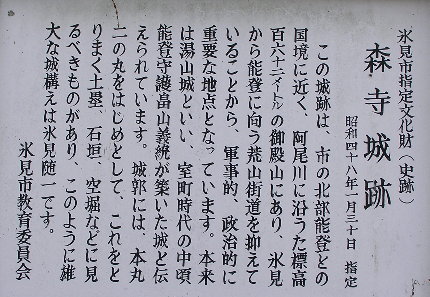 氷見市指定文化財（史跡）
森寺城跡
昭和四十八年一月三十日 指定
この城跡は、市の北部能登との
国境に近く、阿尾川に沿うた標高
百六十二メートルの御殿山にあり、氷見
から能登に向う荒山街道を抑えて
いることから、軍事的、政治的に
重要な地点となっています。本来
は湯山城といい、室町時代の中頃
能登守護畠山義統が築いた城と伝
えられています。城郭には、本丸
二の丸をはじめとして、これをと
りまく土塁、石垣、空堀などに見
るべきものがあり、このように雄
大な城構えは氷見随一です。
氷見市教育委員会